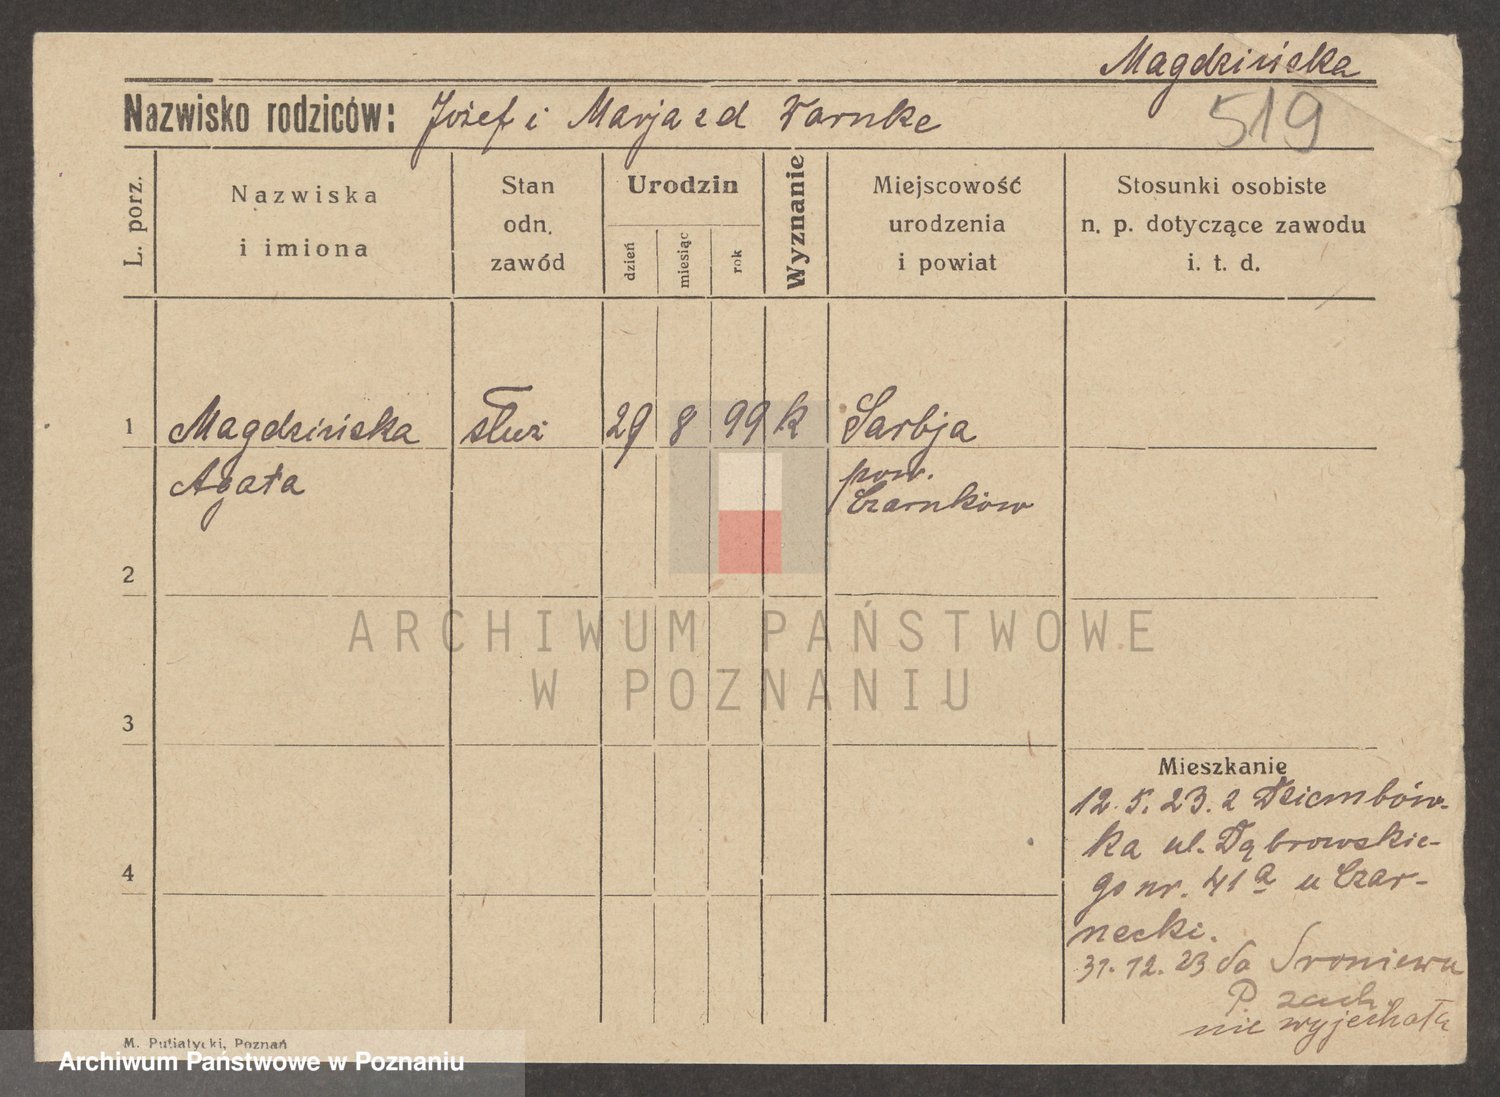 Magdzińska
519
Nazwisko rodziców: Józef i Marja z d Warnke
L. porz.
Nazwiska
i imiona
Stan
odn.
zawód
Urodzin
dzień
miesiąc
rok
Wyznanie
Miejscowość
urodzenia
i powiat
Stosunki osobiste
n. p. dotyczące zawodu
i. t. d.
1 Magdzińska służ 29 8 99 k Sarbja
Agata pow.
Czarnków
2
ARCHIWUM PAŃSTWOWE
W POZNANIU
3
Mieszkanie
12. 5. 23. z Dziembów-
ka ul. Dąbrowskie-
go nr. 41a u Czar-
4
necki.
31. 12. 23 do
P. zach.
nie wyjechała
M. Putiatycki, Poznań
Archiwum Państwowe w Poznaniu